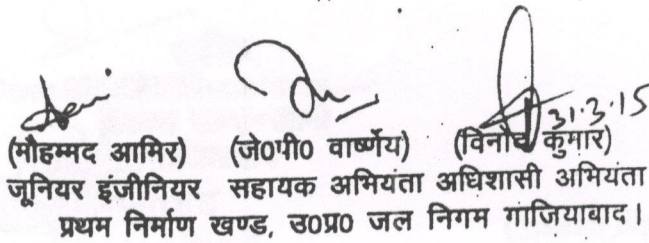 31.3.15
(मौहम्मद आमिर) (जे0पी0 वार्ष्णेय) (विनोद कुमार)
जूनियर इंजीनियर सहायक अभियंता अधिशासी अभियंता
प्रथम निर्माण खण्ड, उ0प्र0 जल निगम गाजियाबाद।